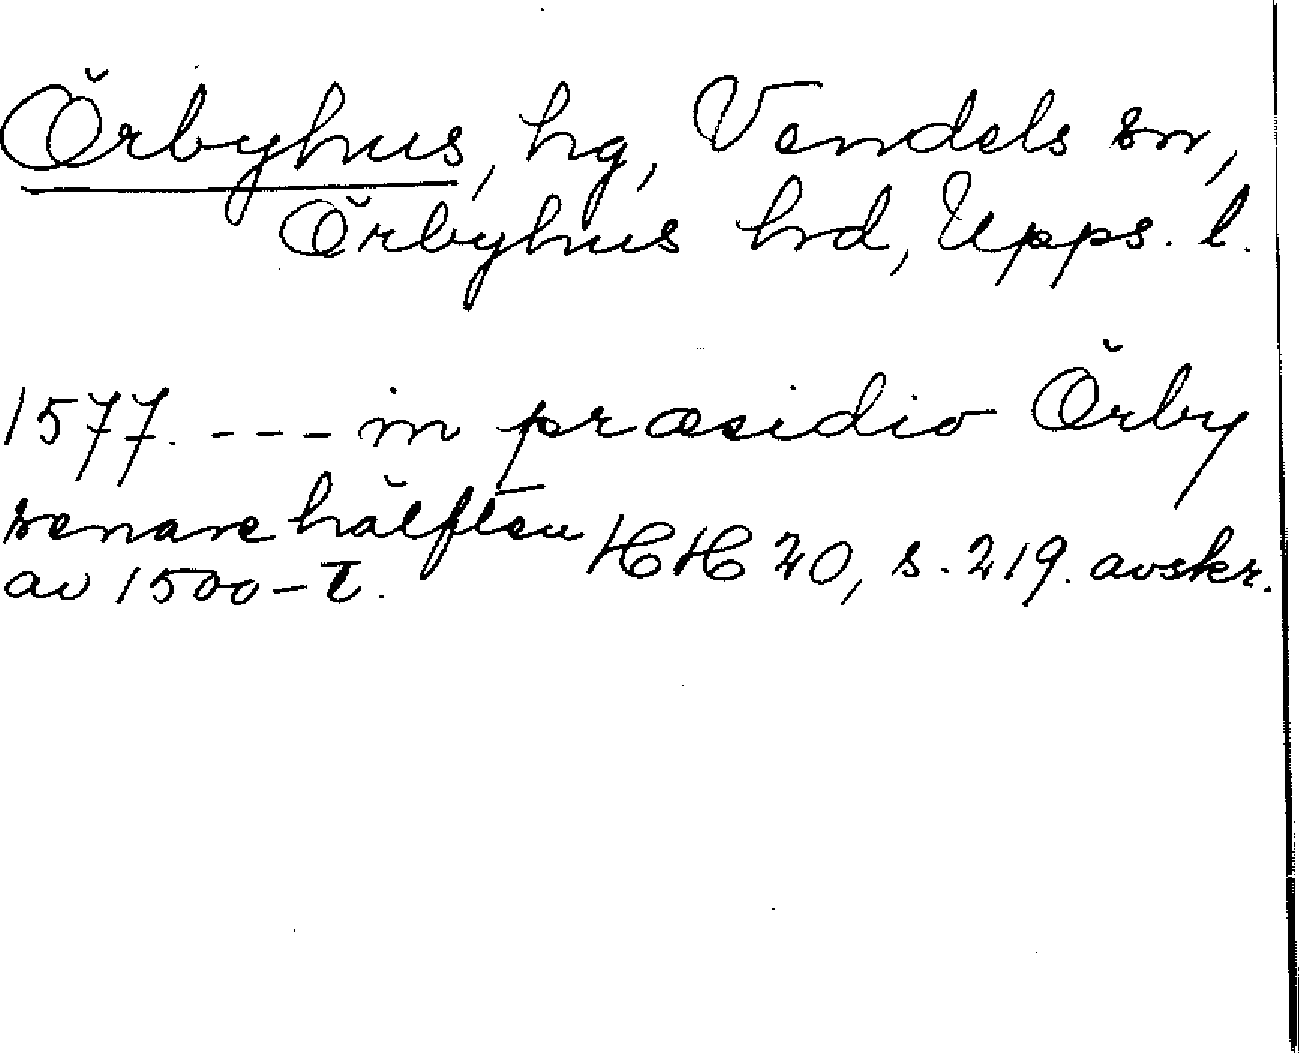 Örbyhus, hg, Vendels sn,
Örbyhus hrd, Upps. l.
1577. --- in præsidio Örby
senare hälften
av 1500-t. HH 20, s. 219. avskr.